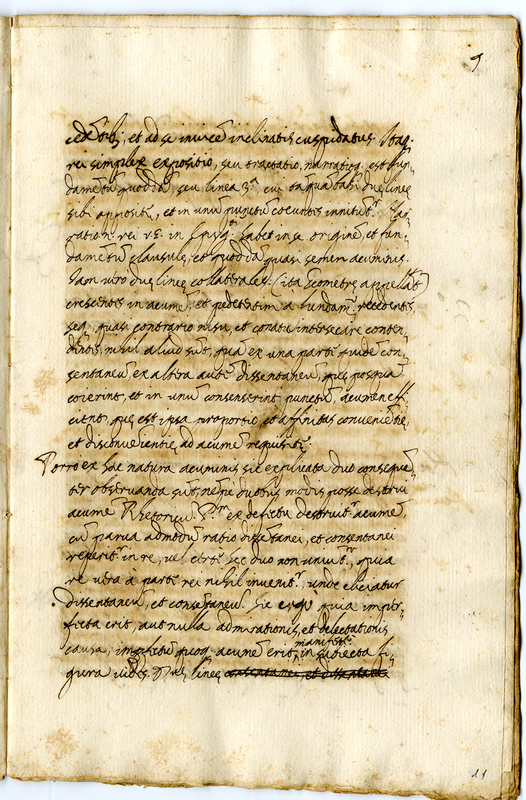 9
cedētib; et ad se invicē inclinatis cuspidatus. Itaq
rei simplex expositio, seu tractatio, narratioq, est fun,
damētū quoddā, seu linea 3ª cui tāquā basi duę lineę
sibi appositę, et in unū punctū coeuntis innitūtʳ. Nar,
ration. rei v.g. in habet in se originē, et fun,
damētū clausulę, et quoddā quasi semen acuminis.
Iam vero duę lineę collaterales (ita Geometrę appellāt)
crescentis in acumē, et pedetentim a fundamᵗ recedentis,
seq, quasi contrario nisu, et conatu intersecare conten,
dentis, nihil aliud sūt, quā ex una parte quidē con,
sentaneū, ex altera autē dissentaneū, quę postquā
coierint, et in unū consenserint punctū, acumen effi,
cient, quę est ipsa proportio, et affinitas convenietię,
et disconvenientię ad acumē requisitę.
Porro ex hac natura acuminis sic explicata duo consequē,
ter observanda sūt, nēpe duobus modis posse destrui
acumē Rhetoricū. Pʳ ex defectu destruitʳ acumē,
cū parva admodū ratio dissētanei, et consentanei
reperitʳ in re, vel certe hęc duo non uniūtʳ, quia
re vera à parte rei nihil invenitʳ, unde eliciatur
dissentaneū, et consētaneū. Sic ergo quia imper,
fecta erit, aut nulla admirationis, et delectationis
causa, imperfectū quoq, acumē erit,
manifestē
in subiecta fi,
gura vides. lineę consentanei, et dissentanei
11